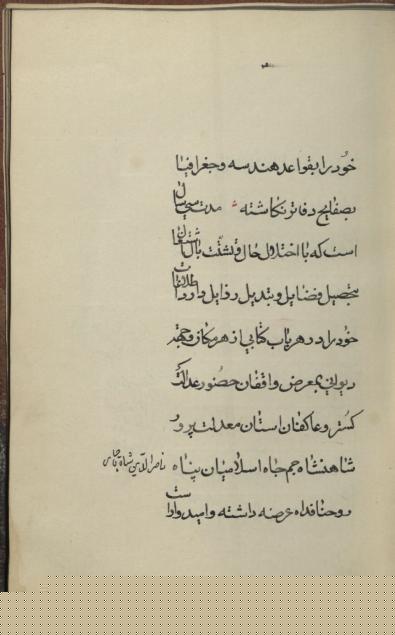 خود را بقواعد هندسه و جغرافیا
بصفایح دفاتر نگاشته مدت سی سال
است که با اختلال حال و تشتت بال اشتغال
بتحصیل فضایل و تبدیل رذایل و اطلاعات
خود را در هر باب کتابی از هر مکان و
دیوانی بمعرض واقفان حضور عدالت
گستر و عاکفان استان معدلت پرور
شاهنشاه جم جاه اسلامیان پناه ناصرالدین شاه قاجار
روحنا فداه عرضه داشته و امیدوار است